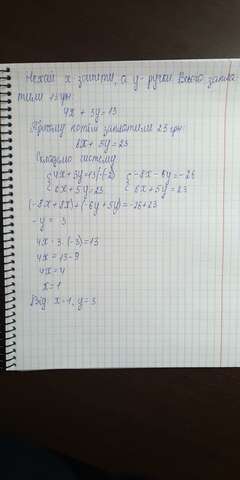 Нехай x зошити, а y- ручки Всього запла
тили 13 грн:
4x + 3y = 13
Причому потім заплатили 23 грн:
8x + 5y = 23
Складемо систему
{4x+3y=13/·(-2) {-8x-6y=-26
{8x+5y=23 {8x+5y=23
(-8x+8x)+(-6y+5y)=-26+23
-y = 3
4x · 3 · (-3)=13
4x = 13-9
4x = 4
x = 1
Від: x=1, y=3